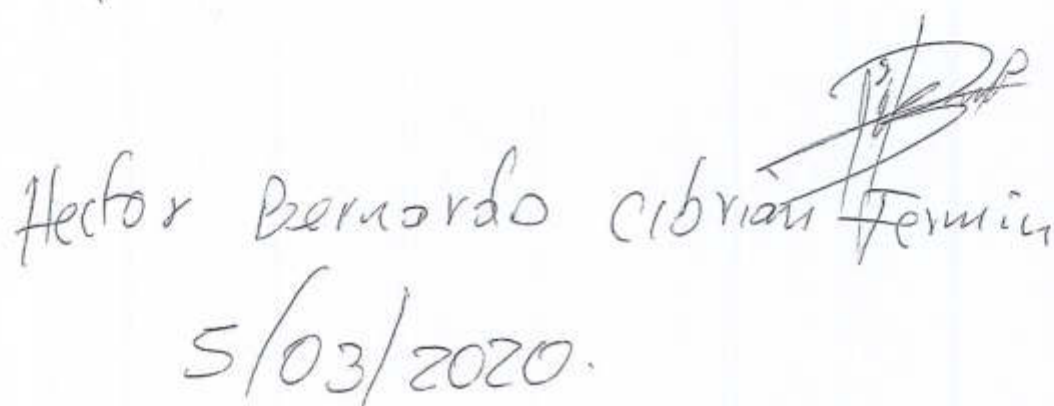 Hector Bernardo Cibrian Fermin
5/03/2020.